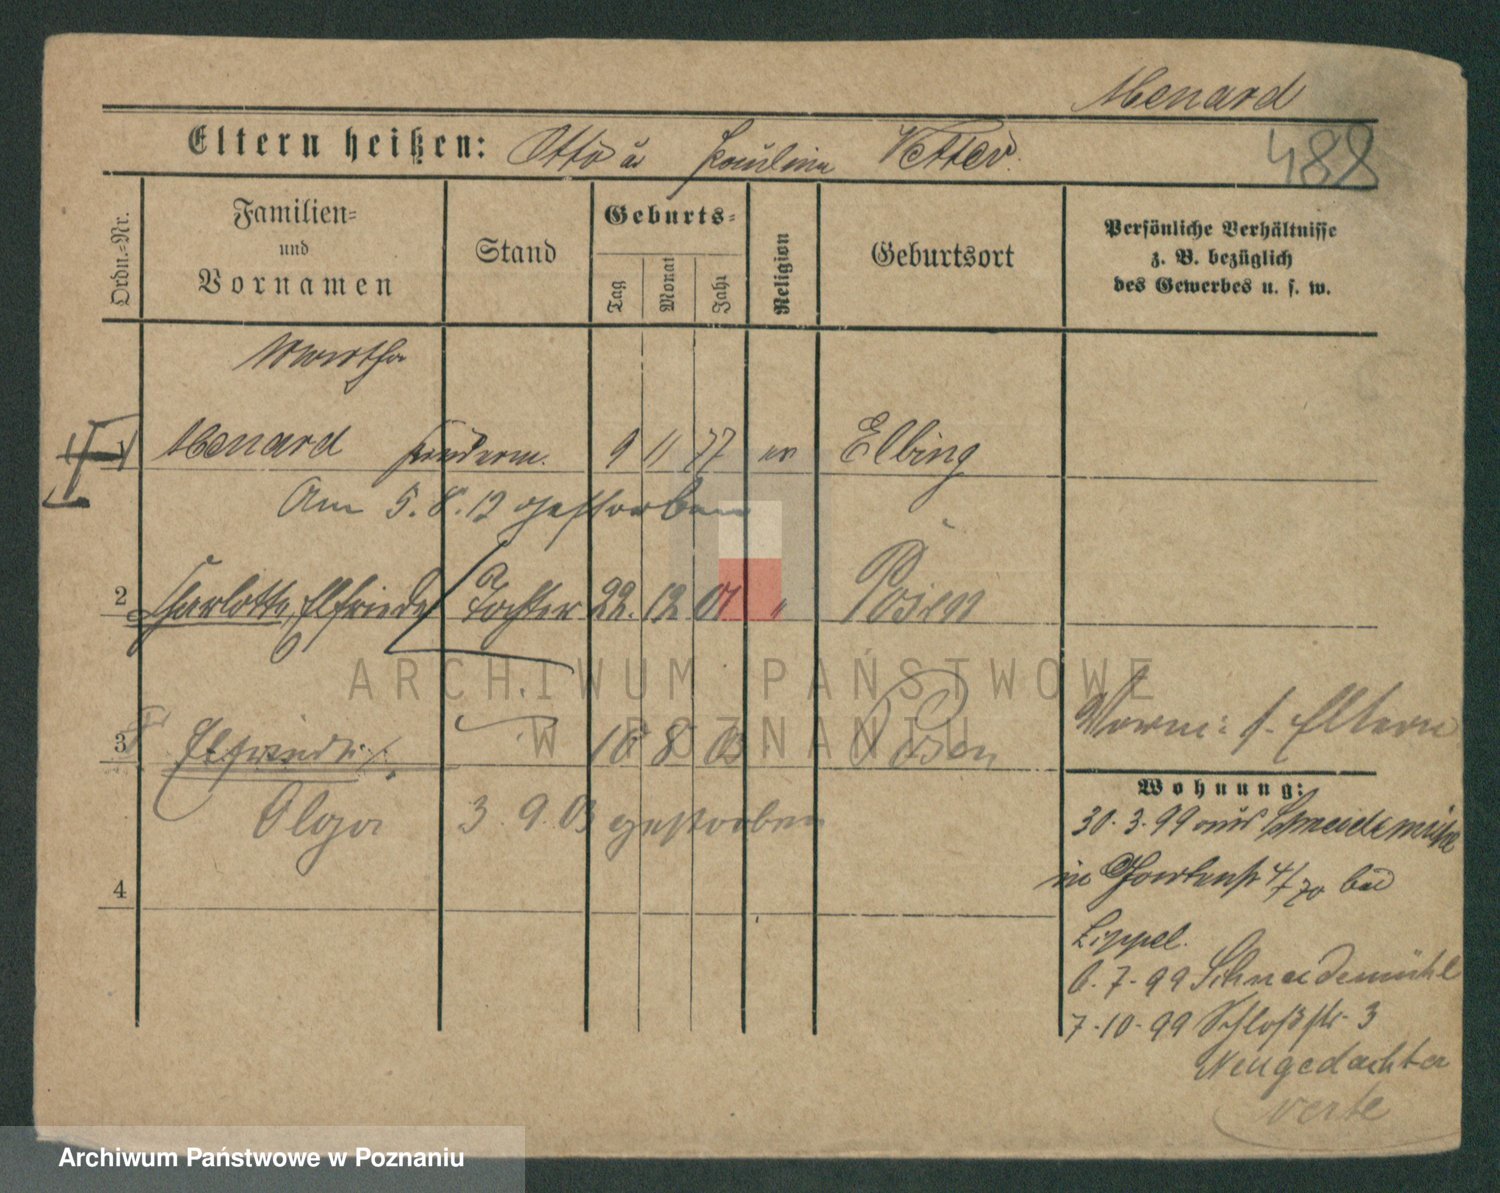 Menard
488
Eltern heißen: Otto u. Pauline Vetter.
Ordn.-Nr.
Familien-
und
Vornamen
Stand
Geburts-
Tag
Monat
Jahr
Religion
Geburtsort
Persönliche Verhältnisse
z. B. bezüglich
des Gewerbes u. s. w.
Martha
1 Menard 9 11 77 ev Elbing
Am 5. 8. 12 gestorben
2 Charlotte, Elfriede Tochter 22. 12 01 " Posen
3 Elfriede 16 8 03 Posen
Vorm: s. Eltern
Olga 3 9. 03 gestorben
4
Wohnung:
30. 3. 99 aus Schneidemühl
in Gartenstr 4/ 70 bei
Lippel.
6. 7. 99 Schneidemühl
7. 10. 99 Schloßstr. 3
Neugedachter
verte
ARCHIWUM PAŃSTWOWE
W POZNANIU
Archiwum Państwowe w Poznaniu